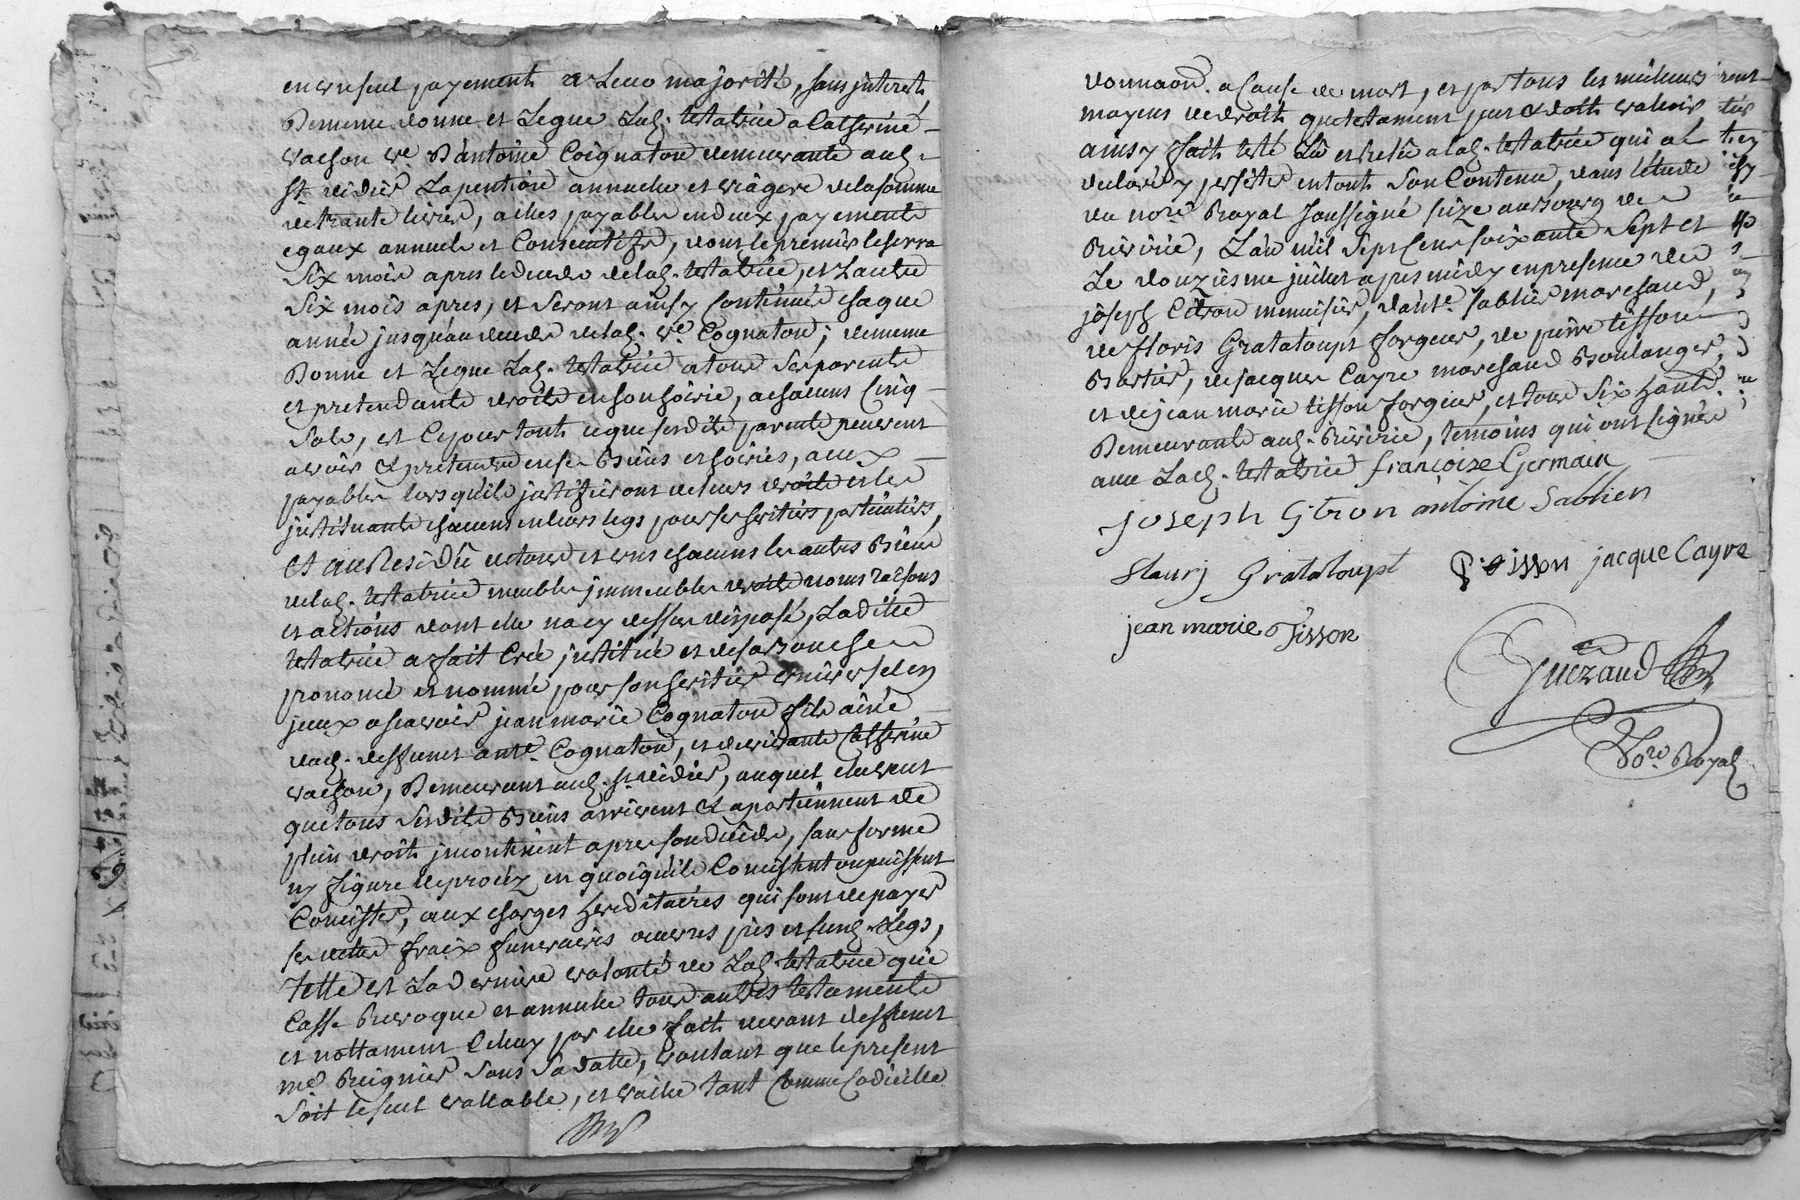 en un seul payement a leur majorité, sans interest,
Dememe donne et Legue Lad. testatrice a Catherine
vachon ve D'antoine Coignaton demeurante aud.
st. didier Lapention annuelle et viagere de la somme
de trante livres, a elles payable en deux payements
egaux annuels et Consecutifs, dont le premier le serra
Six mois apres le deceds de lad. testatrice, et Lautre
Six mois apres, et seront ainsy Continués chaque
année jusqu'au deceds de lad. ve Cognaton; dememe
Donne et Legue Lad. testatrice a tous ses parents
et pretendants droits en son hoirie, a chacuns Cinq
Sols, et Ce pour tout ce que sesdits parents peuvent
avoir & pretendre en ses Biens et hoiries, a eux
payables lorsqu'ils justifieront de leurs droits et les
jnstituants chacuns en leurs legs pour ses heritiers particuliers,
Et au Residû de tous et uns chacuns les autres Biens
de lad. testatrice meubles jmmeubles droits noms raisons
et actions dont elle na cy dessus disposé, Ladite
testatrice a fait Créé jnstitué et de sa Bouche
prononcé et nommé pour son heritier universel en
jceux a scavoir jean marie Cognaton fils ainé
dud. deffunt ante. Cognaton, et de vivante Catherine
vachon, Demeurant aud. st. didier, auquel elle veut
que tous sesdits Biens arrivent & apartiennent de
plein droit jncontinent apres son deceds, sans forme
ny figure de procéz en quoi qu'ils Concistent ou puissent
Concister, aux charges Hereditaires qui sont de payer
ses dettes fraix funeraires œuvres pies et susd. Legs,
telle est La derniere volonté de Lad. testatrice qui
Casse Revoque et annulle tous autres testaments
et nottament Celuy par elle fait devant deffunt
me Reignier sous sa datte, voulant que le present
soit le seul vallable, et vaille tant Comme Codicille
donnaon. a Cause de mort, et par tous les meilleurs
moyens de droit que testament peut & doit valoir
ainsy fait testé Lû et relû a lad. testatrice qui a
declaré y persister en tout Son Contenu, dans létude
du nore. Royal Soussigné size au Bourg de
Riverie, L'an mil Sept Cens soixante Sept et
Le douziesme juillet apres midy en presence de
joseph Citron menuisier, d'ante. Sablier marchand,
de floris Grataloupt forgeur, de pierre tisson
Bastier, de jacques Cayre marchand Boulanger,
et de jean marie tisson forgeur, et tous Six Habts.
Demeurants aud. Riverie, temoins qui ont signés
avec Lad. testatrice francoize Germain
joseph Citron antoine Sablien
fleury Grataloupt P. tisson jacque Cayre
jean marie Tisson
Guezaud
No.re Royal